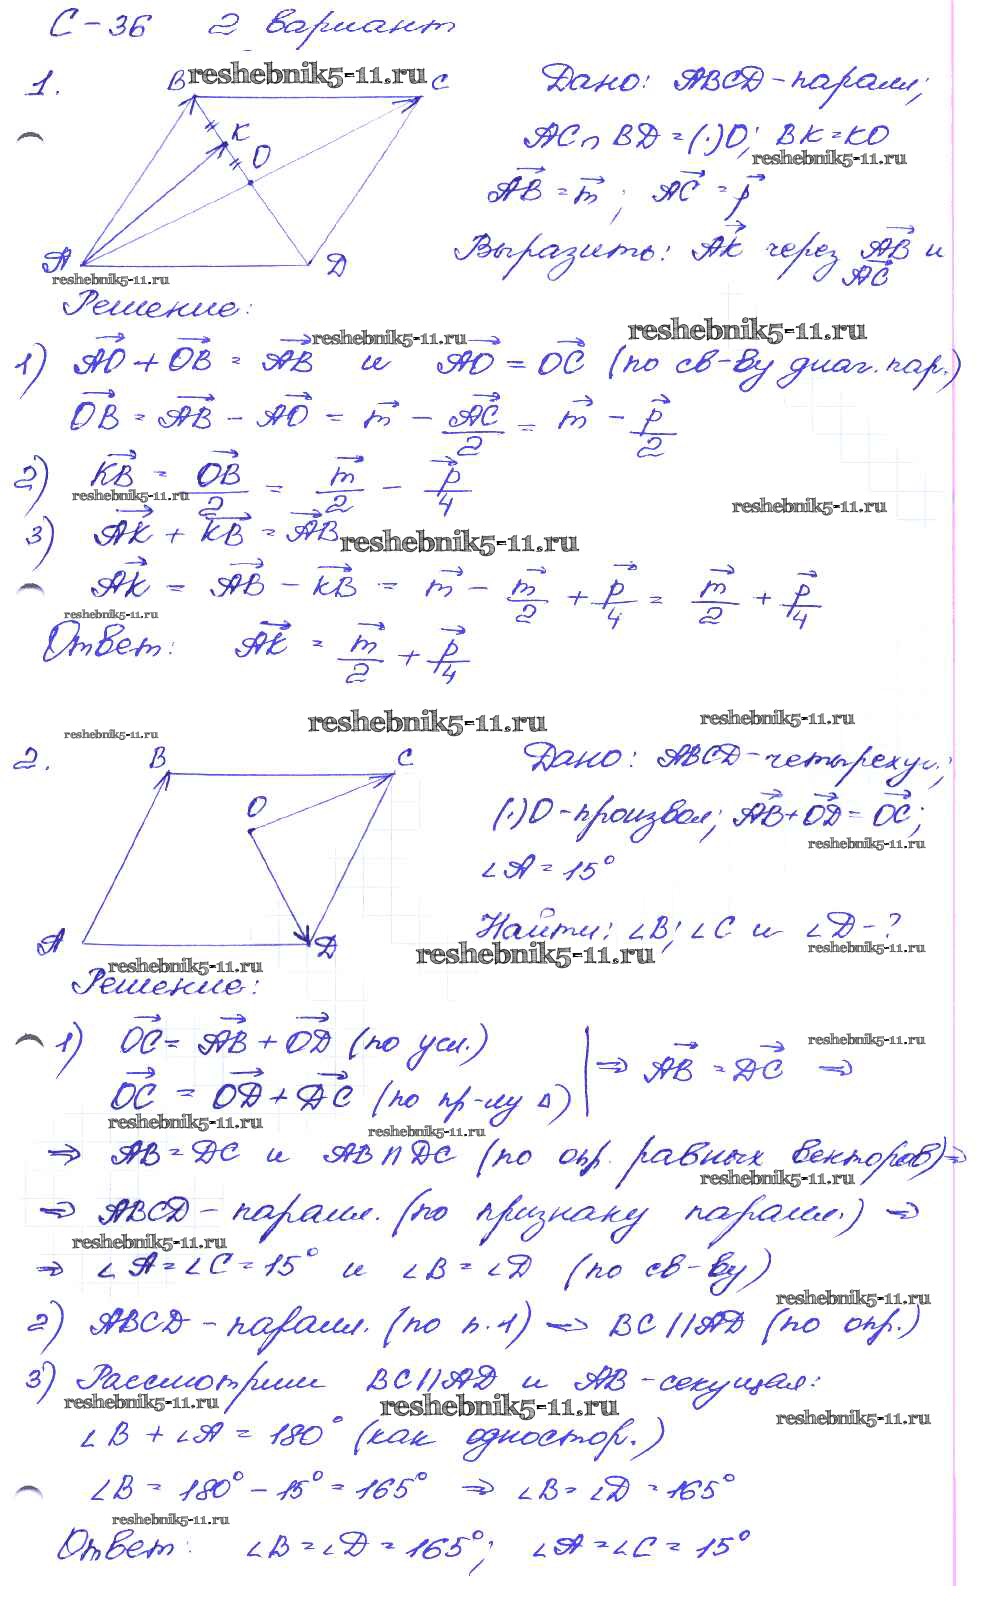 С-36 2 вариант
1.
B reshebnik5-11.ru C
K
O
A D
reshebnik5-11.ru
Дано: ABCD-паралл;
AC∩BD=(·)O; BK=KO
reshebnik5-11.ru
AB⃗ = m⃗; AC⃗ = p⃗
Выразить: AK⃗ через AB⃗ и
AC⃗
Решение:
reshebnik5-11.ru reshebnik5-11.ru
1) AO⃗ + OB⃗ = AB⃗ и AO⃗ = OC⃗ (по св-ву диаг. пар.)
OB⃗ = AB⃗ - AO⃗ = m⃗ - AC⃗/2 = m⃗ - p⃗/2
2) KB⃗ = OB⃗/2 = m⃗/2 - p⃗/4
reshebnik5-11.ru reshebnik5-11.ru
3) AK⃗ + KB⃗ = AB⃗
reshebnik5-11.ru
AK⃗ = AB⃗ - KB⃗ = m⃗ - m⃗/2 + p⃗/4 = m⃗/2 + p⃗/4
reshebnik5-11.ru
Ответ: AK⃗ = m⃗/2 + p⃗/4
reshebnik5-11.ru reshebnik5-11.ru reshebnik5-11.ru
2.
B C
O
A D
Дано: ABCD-четырехуг.;
(·)O-произвол; AB⃗+OD⃗=OC⃗;
reshebnik5-11.ru
∠A=15°
Найти: ∠B; ∠C и ∠D-?
reshebnik5-11.ru reshebnik5-11.ru
reshebnik5-11.ru
Решение:
1) OC⃗ = AB⃗ + OD⃗ (по усл.)
reshebnik5-11.ru
OC⃗ = OD⃗ + DC⃗ (по пр-лу Δ) | ⇒ AB⃗ = DC⃗ ⇒
reshebnik5-11.ru reshebnik5-11.ru
⇒ AB=DC и AB∩DC (по опр. равных векторов)⇒
reshebnik5-11.ru
⇒ ABCD-паралл. (по признаку паралл.) ⇒
reshebnik5-11.ru
⇒ ∠A=∠C=15° и ∠B=∠D (по св-ву)
reshebnik5-11.ru
2) ABCD-паралл. (по п.1) ⇒ BC//AD (по опр.)
3) Рассмотрим BC//AD и AB-секущая:
reshebnik5-11.ru reshebnik5-11.ru reshebnik5-11.ru
∠B + ∠A = 180° (как одностор.)
∠B = 180° - 15° = 165° ⇒ ∠B=∠D=165°
reshebnik5-11.ru
Ответ: ∠B=∠D=165°; ∠A=∠C=15°